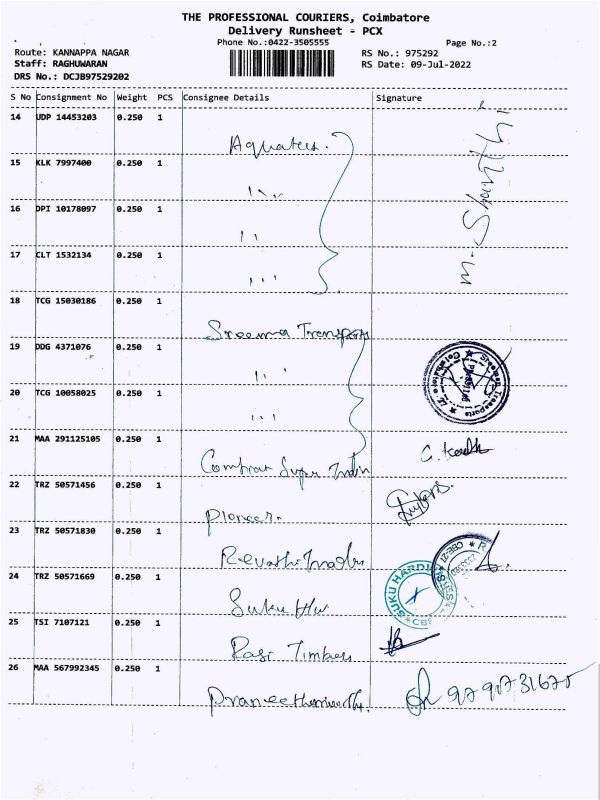 THE PROFESSIONAL COURIERS, Coimbatore
Delivery Runsheet - PCX
Phone No.:0422-3505555 Page No.:2
Route: KANNAPPA NAGAR RS No.: 975292
Staff: RAGHUWARAN RS Date: 09-Jul-2022
DRS No.: DCJB97529202
S No Consignment No Weight PCS Consignee Details Signature
14 UDP 14453203 0.250 1
15 KLK 7997400 0.250 1
,, ,,
16 DPI 10178097 0.250 1
,,
17 CLT 1532134 0.250 1
,,,
18 TCG 15030186 0.250 1
Sreema Transports
19 DDG 4371076 0.250 1
,,,
20 TCG 10058025 0.250 1
,,,
21 MAA 291125105 0.250 1
Super India
22 TRZ 50571456 0.250 1
Pioneer.
23 TRZ 50571830 0.250 1
24 TRZ 50571669 0.250 1
Suku Hw
SUKU HARD
CBE
25 TSI 7107121 0.250 1
Rasi Timbers
26 MAA 567992345 0.250 1